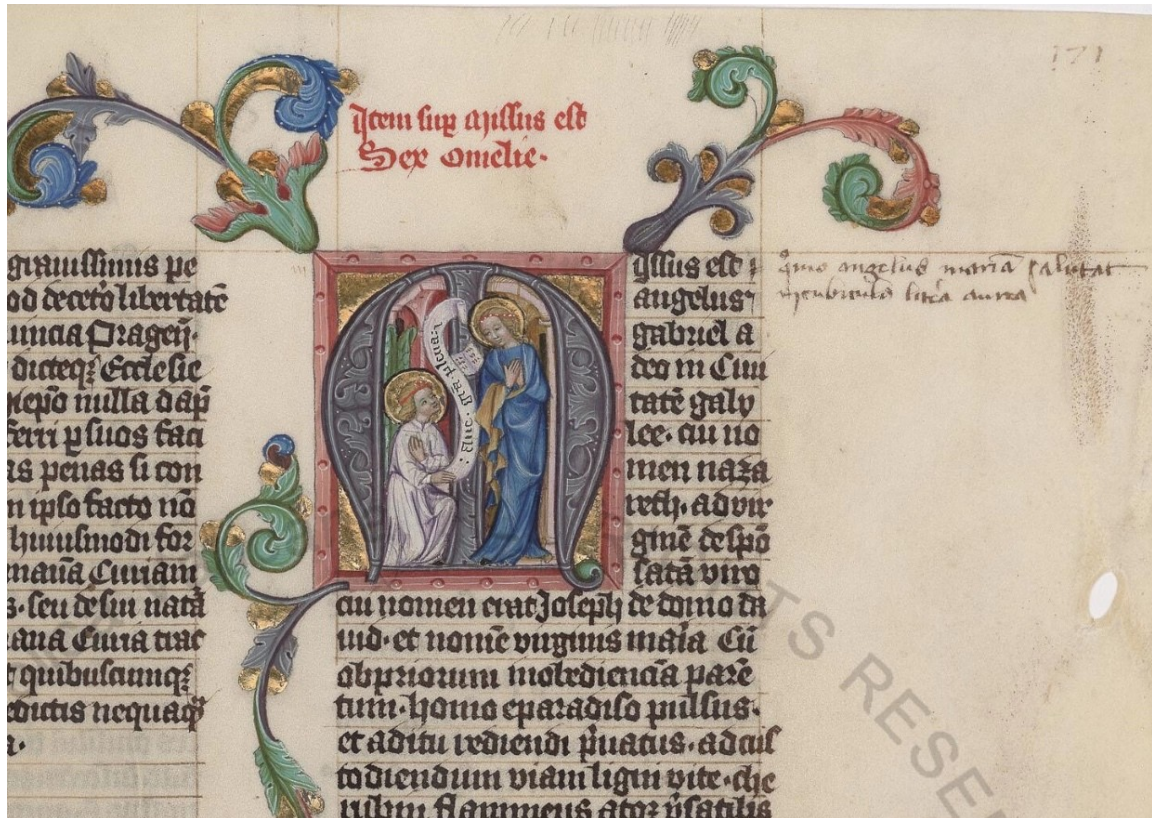 171
Itein sup Missus est
Sex Omelie·
grauissimis pe
od decetō libertatē
uincia Pragen̄·
dicteqȝ Ecclesie
nulla
ferri ꝑ suos faci
as penas si con
n ipso facto nō
huiusmodi for
Curiam
s· seu de sui natā
ana Curia trac
quibuscumqȝ
edictis nequaqꝫ
a·
yssus est
angelus
gabriel a
deo in Ciui
tatē galy
lee· cui no
men naza
reth· ad vir
ginē despō
satā viro
cui nomen erat Joseph de domo da
uid· et nomē virginis maīa Cū
ob priorum inobedienciā parē
tum· homo e paradiso pulsus·
et aditu redeundi p̄uatus· ad cus
todiendum viam ligni vite· che
rubin flammeus
: Aue· grā· plena :
angelus mariā salutat
aurea
RESE